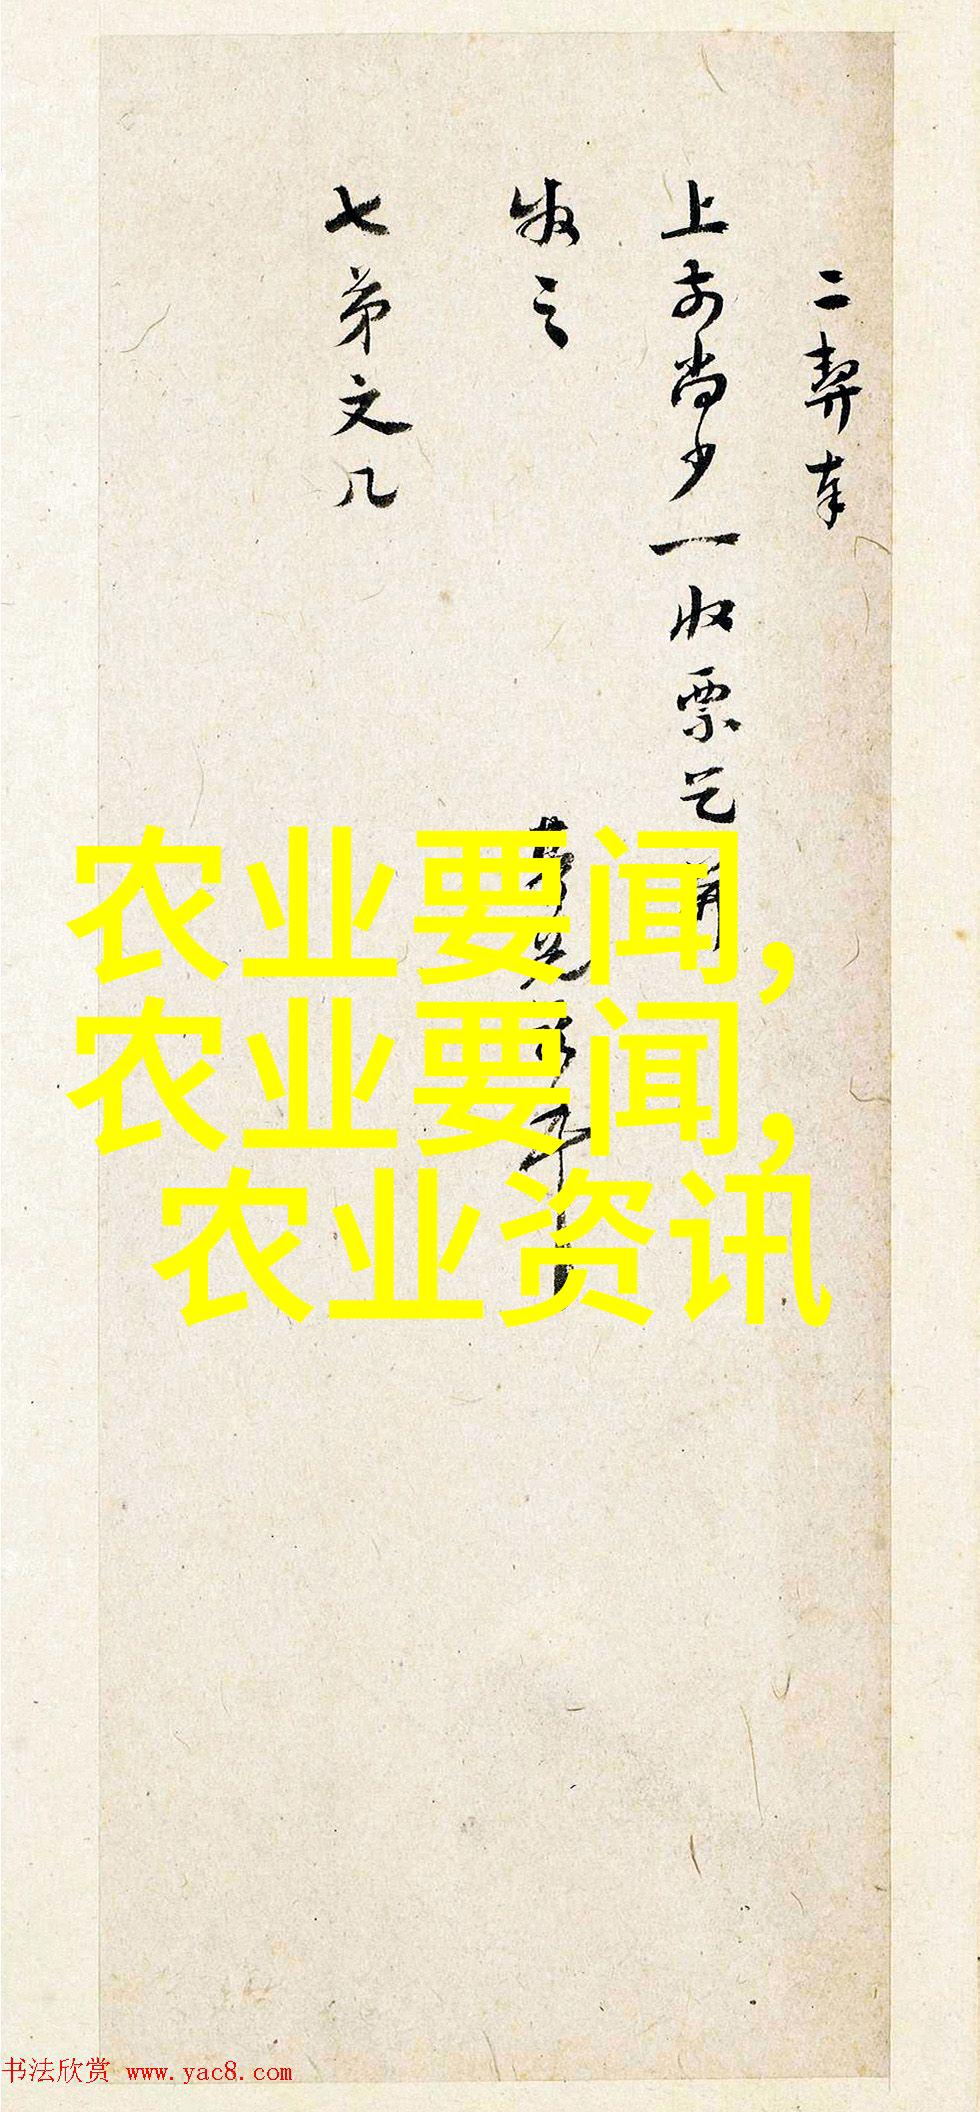 二契奉
上前尚少一收票乞
收之
七弟文几
农业要闻,
农业要闻,
农业资讯
书法欣赏 www.yac8.com